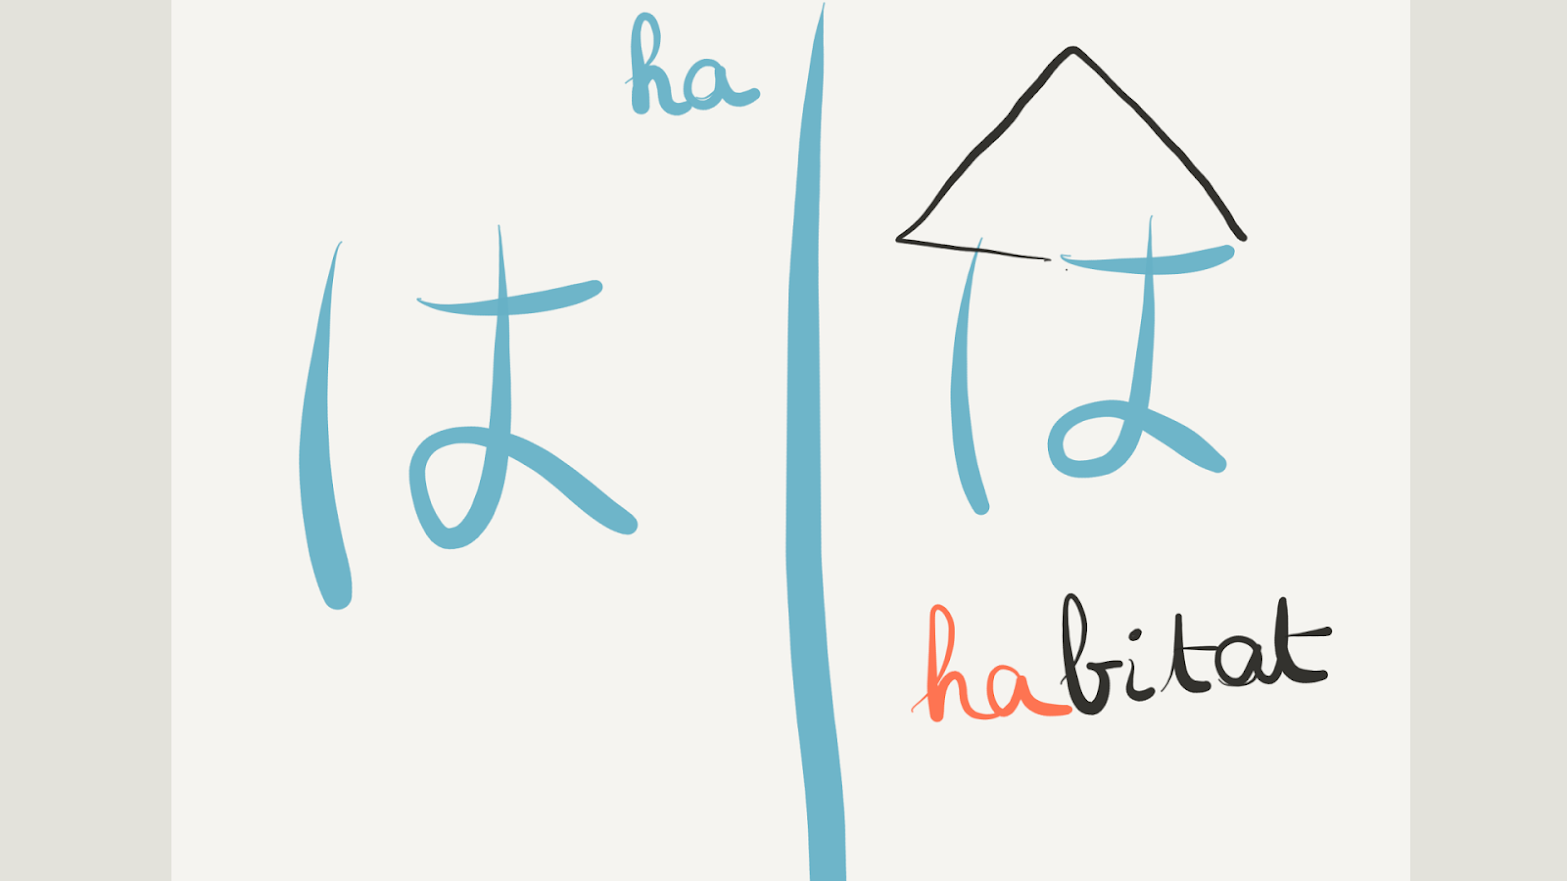 ha
は
は
habitat